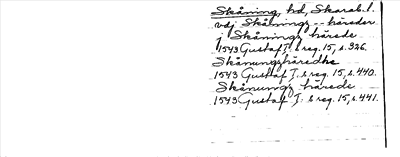 Skåning, hd, Skarab. l.
vdj Skåningz -- häreder
j Skåningz härede
1543 Gustaf I: s reg. 15, s. 326.
Skånungzhäredhe
1543 Gustaf I: s reg. 15, s. 440.
Skånungz härede
1543 Gustaf I: s reg. 15, s. 441.